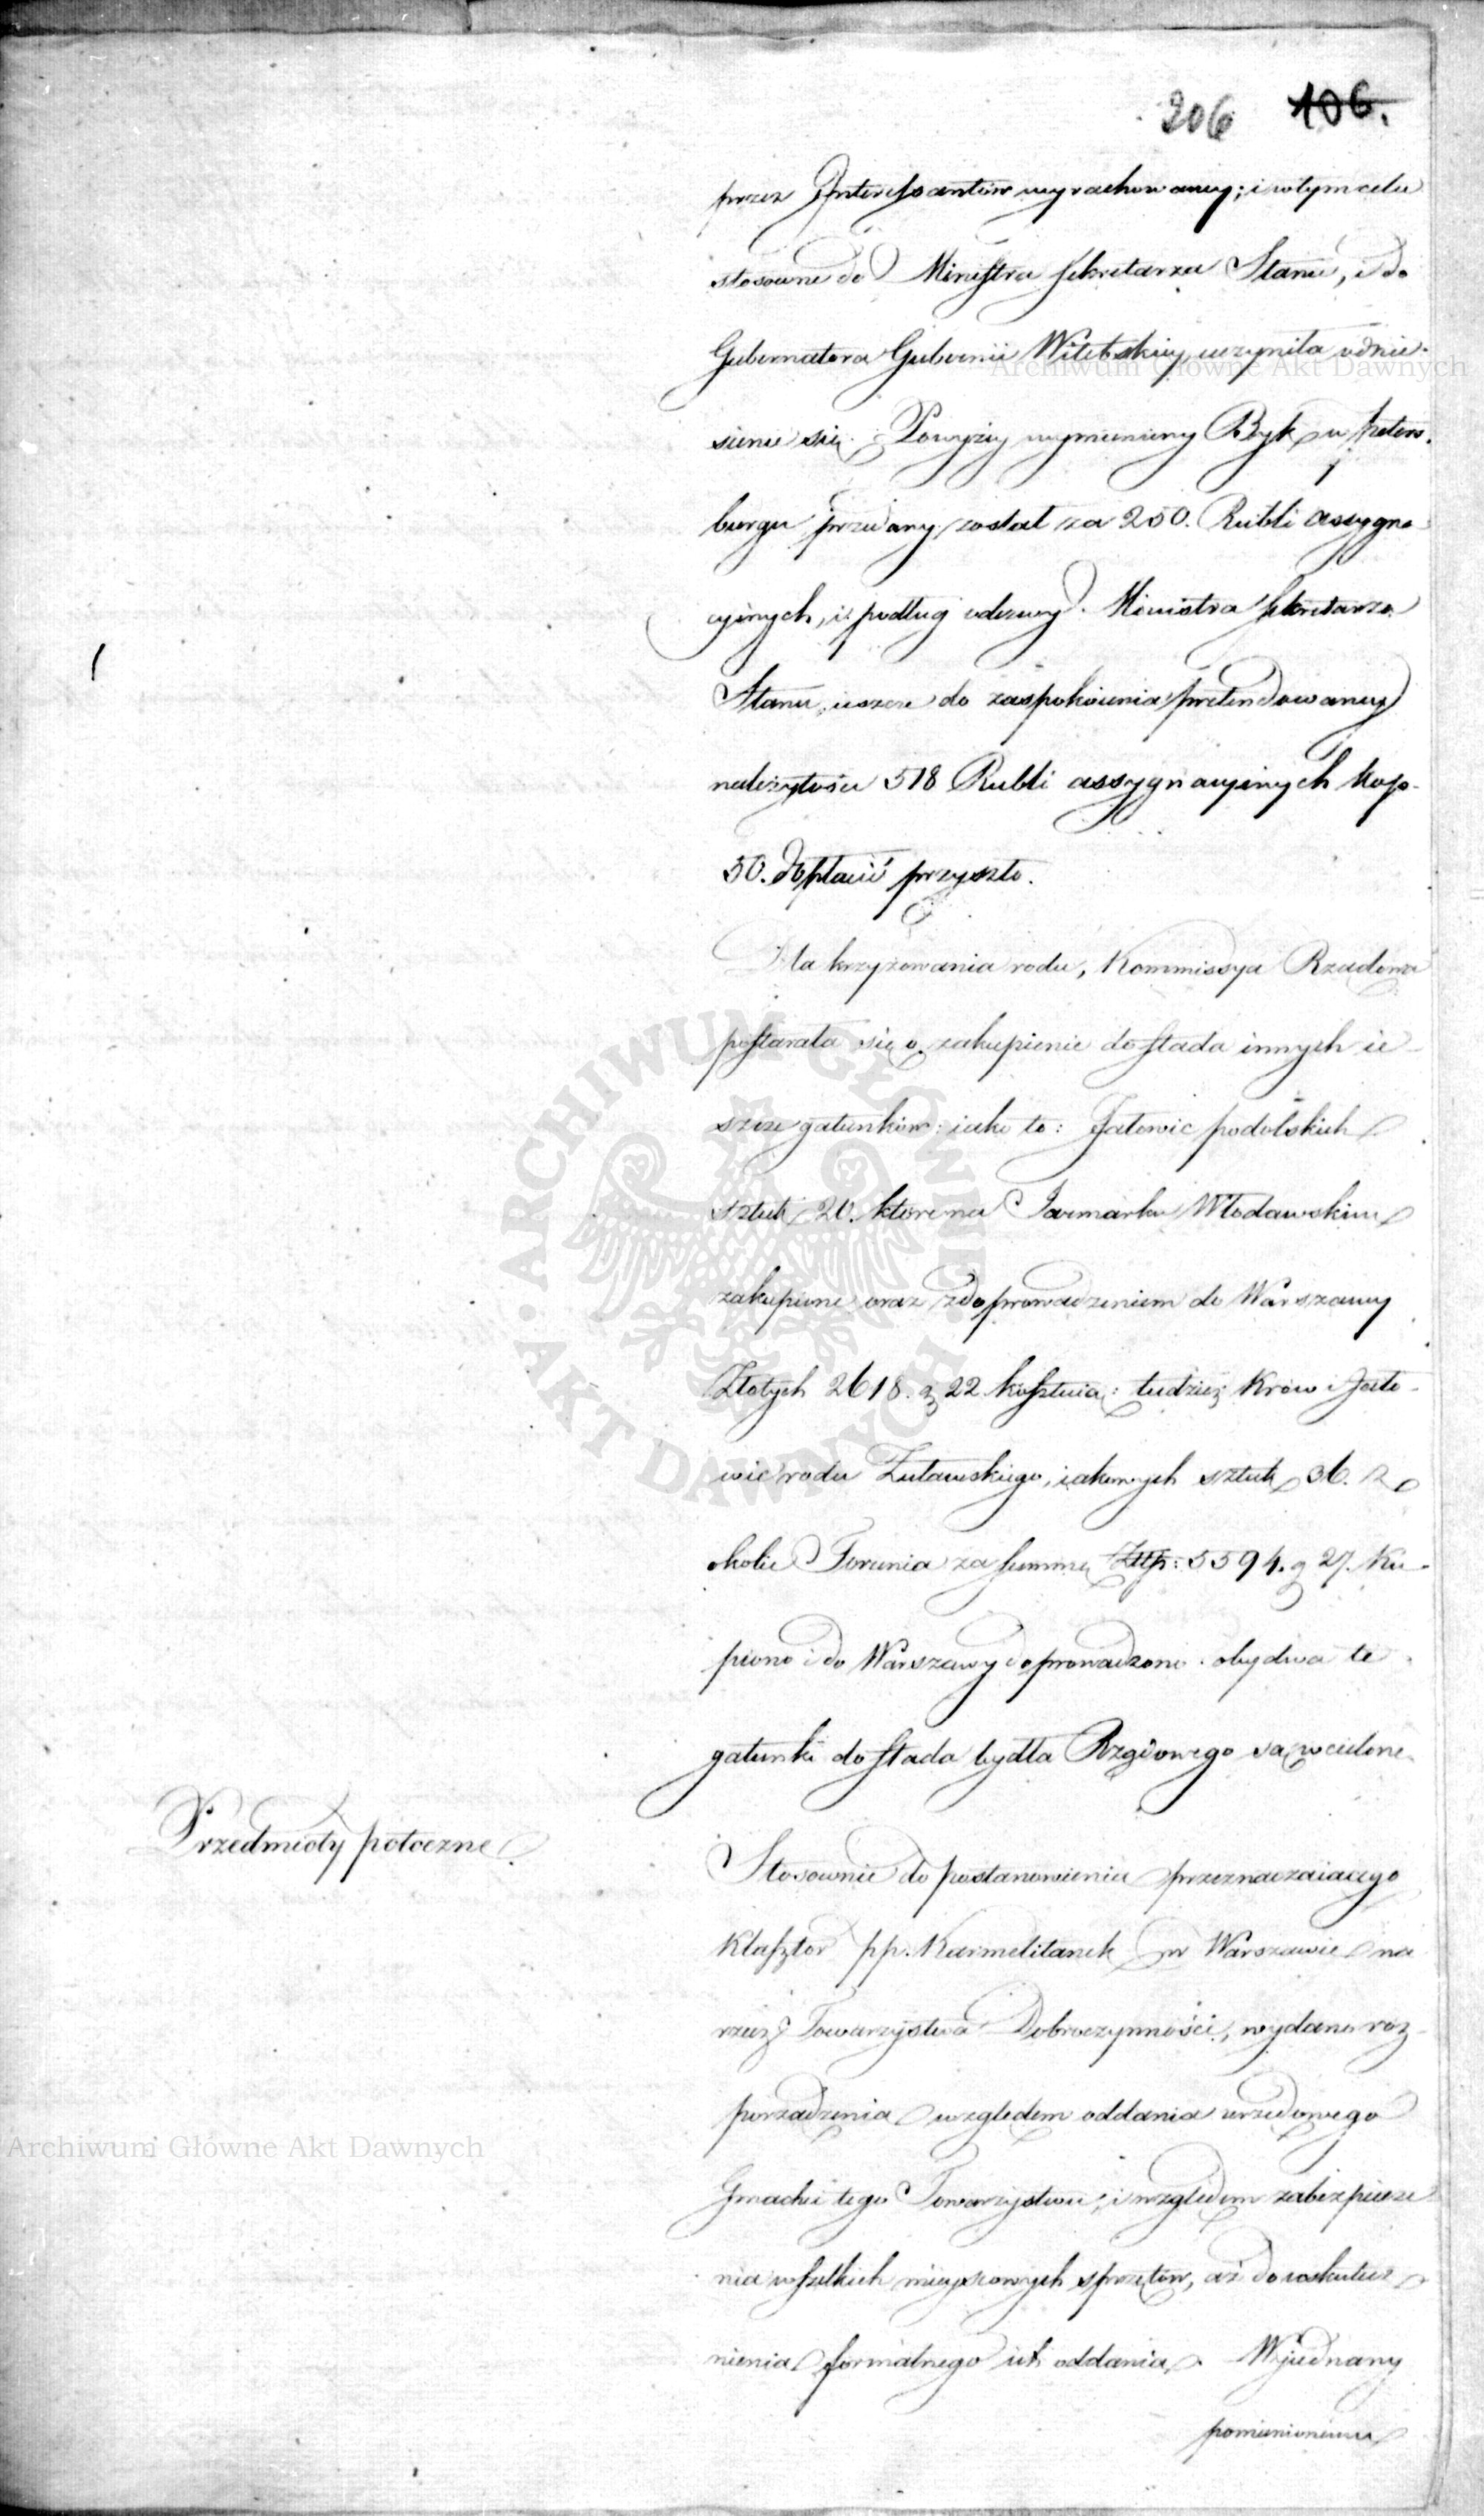 206 106.
przez Interessantów wyrachowaney; i w tym celu
stosowne do Ministra Sekretarza Stanu, i do
Gubernatora Gubernii Witebskiey, uczyniła odnie-
Archiwum Główne Akt Dawnych
sienie się. Powyżey wymieniony Byk w Peters-
burgu przedany został za 250. Rubli assygna-
cyinych, i podług odezwy Ministra Sekretarza
Stanu, ieszcze do zaspokoienia pretendowaney
należytości 518 Rubli assygnacyinych kop.
50. dopłacić przyszło.
Dla krzyżowania rodu, Kommissya Rządowa
postarała się o zakupienie do stada innych ie-
szcze gatunków: iako to: Jałowic podolskich
sztuk 20. które na Jarmarku Włodawskim
zakupione oraz z doprowadzeniem do Warszawy
Złotych 2618. g 22 kosztuią: tudzież Krów i Jało-
wic rodu Żuławskiego, iakowych sztuk 36. z
okolic Torunia za summę Złp: 5594. g 27. Ku-
piono i do Warszawy doprowadzono. obydwa te
gatunki do stada bydła Rządowego są wcielone.
ARCHIWUM GŁÓWNE AKT DAWNYCH
Przedmioty potoczne
Stosownie do postanowienia przeznaczaiącego
Klasztor pp. Karmelitanek w Warszawie na
rzecz Towarzystwa Dobroczynności, wydano roz-
porządzenia względem oddania urzędowego
Archiwum Główne Akt Dawnych
Gmachu tego Towarzystwu, i względem zabezpiecze-
nia wszelkich mieyscowych sprzętów, aż do uskutecz-
nienia formalnego ich oddania. Wjednany
pomienionemu